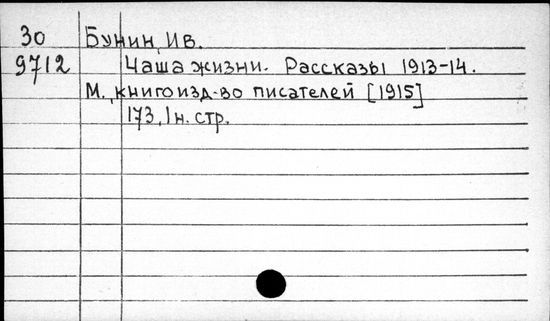 30 Бунин, Ив.
9712 Чаша жизни. Рассказы 1913-14.
М., книгоизд-во писателей [1915]
173, 1 н. стр.